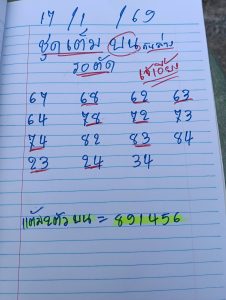 17 / 1 / 69
ชุดเต็ม บน
รอตัด
67 68 62 63
64 78 72 73
74 82 83 84
23 24 34
แต้มตัวบน = 891456